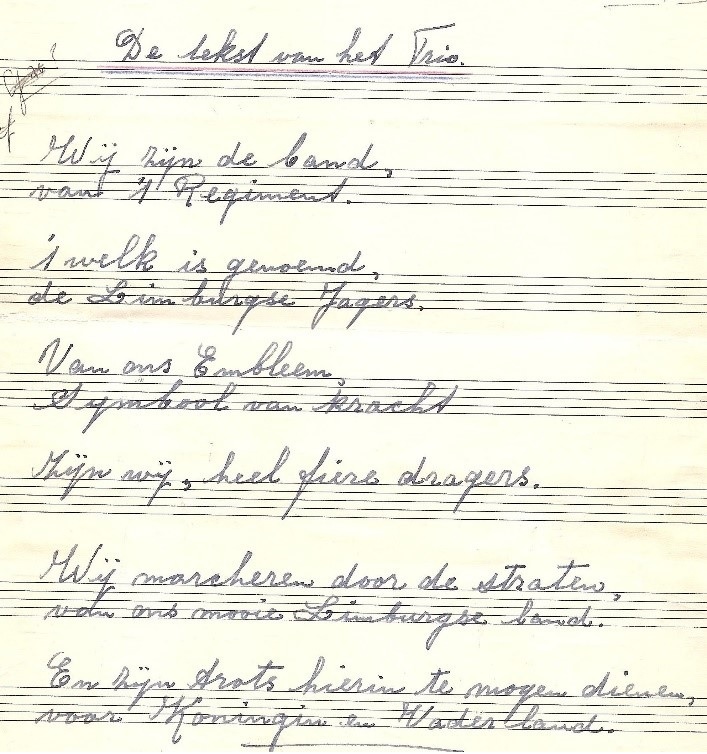 De tekst van het Trio.
Wij zijn de band,
van 't Regiment.
't welk is genoemd,
de Limburgse Jagers.
Van ons Embleem,
Symbool van kracht
Zijn wij, heel fiere dragers.
Wij marcheren door de straten,
van ons mooie Limburgse land.
En zijn trots hierin te mogen dienen,
voor Koningin en Vaderland.